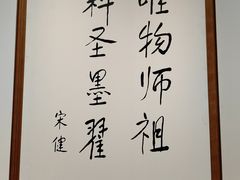 唯物师祖
科圣墨翟
宋健